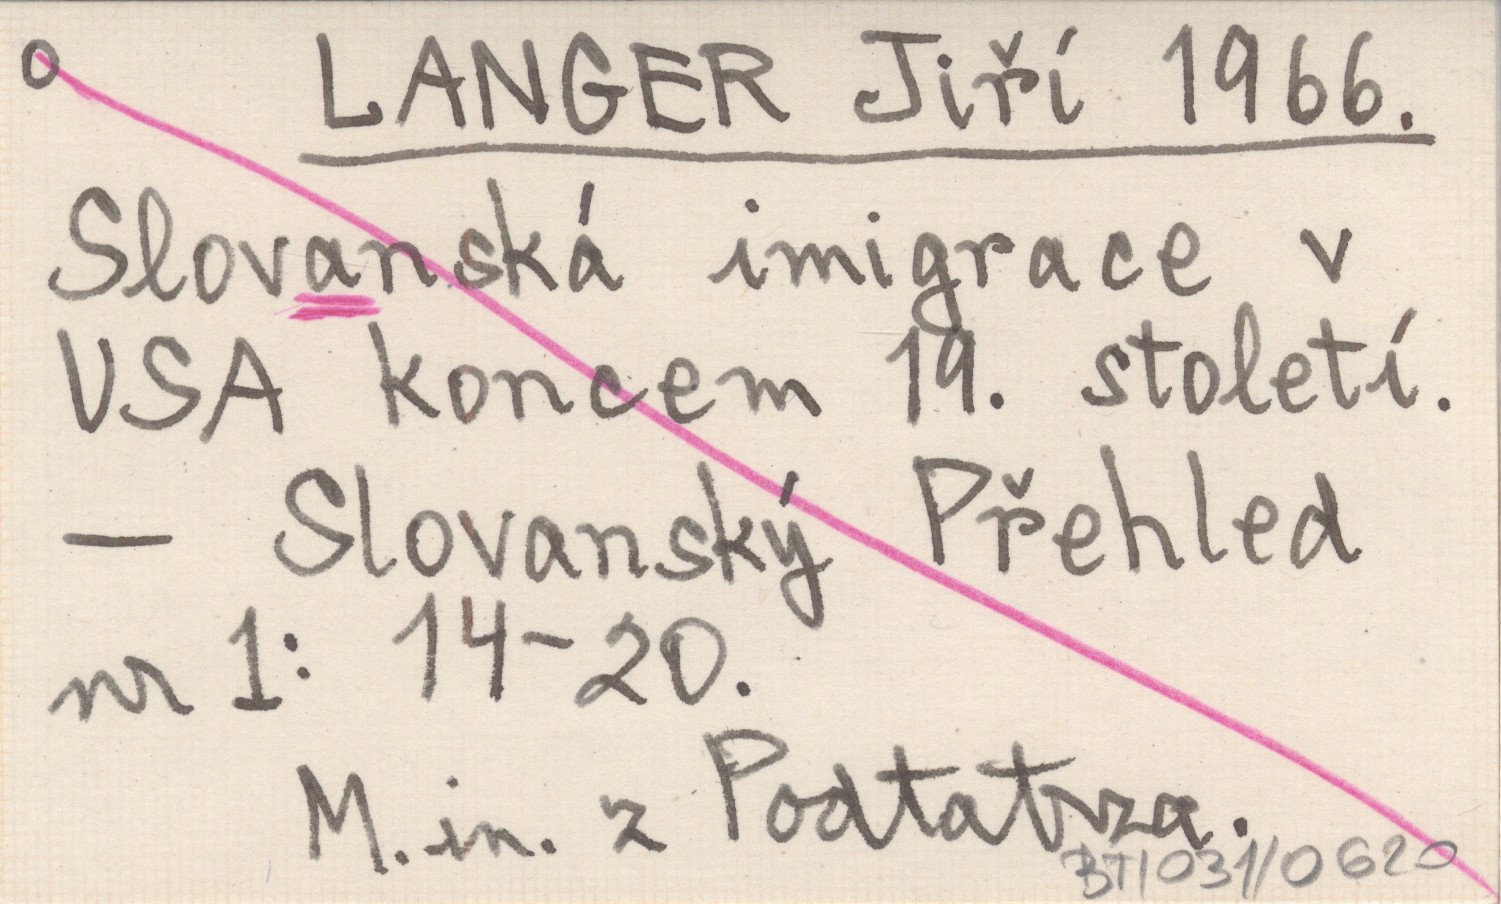 o LANGER Jiří 1966.
Slovanská imigrace v
USA koncem 19. století.
— Slovanský Přehled
nr 1: 14-20.
M.in. z Podtatrza.
BT/031/0620